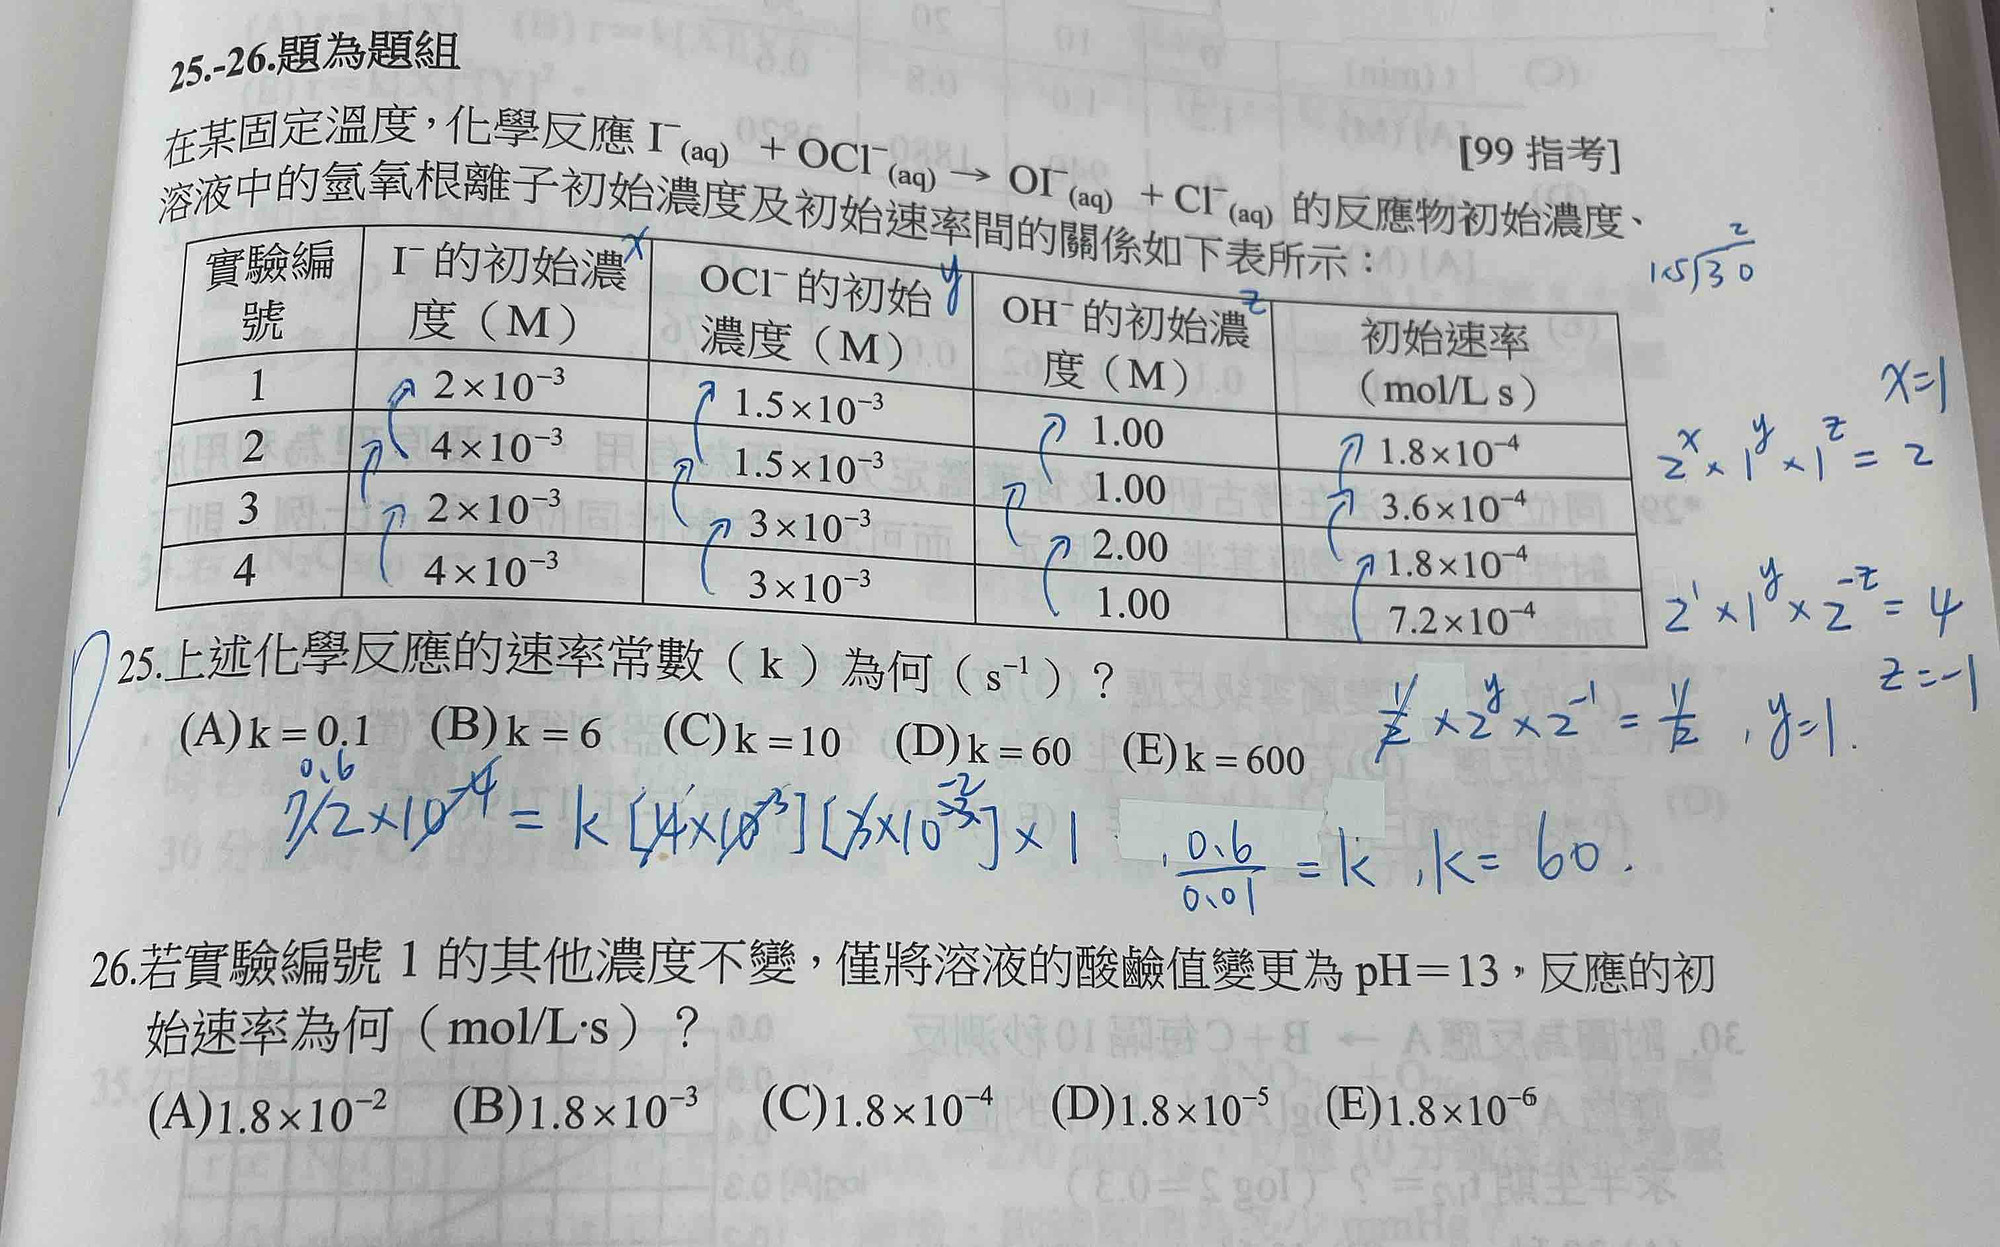 25.-26.題為題組
[99 指考]
在某固定溫度，化學反應 I⁻(aq) + OCl⁻(aq) → OI⁻(aq) + Cl⁻(aq) 的反應物初始濃度、
溶液中的氫氧根離子初始濃度及初始速率間的關係如下表所示：
實驗編號 I⁻ 的初始濃度（M） x OCl⁻ 的初始濃度（M） y OH⁻ 的初始濃度（M） z 初始速率（mol/L s）
1 2×10⁻³ 1.5×10⁻³ 1.00 1.8×10⁻⁴
2 4×10⁻³ 1.5×10⁻³ 1.00 3.6×10⁻⁴
3 2×10⁻³ 3×10⁻³ 2.00 1.8×10⁻⁴
4 4×10⁻³ 3×10⁻³ 1.00 7.2×10⁻⁴
2
1.5√30
x=1
2ˣ×1ʸ×1ᶻ=2
2¹×1ʸ×2⁻ᶻ=4
z=-1
1/2×2ʸ×2⁻¹=1/2, y=1.
25.上述化學反應的速率常數（k）為何（s⁻¹）？
(A)k＝0.1 (B)k＝6 (C)k＝10 (D)k＝60 (E)k＝600
0.6
7.2×10⁻⁴=k[4×10⁻³][3×10⁻³]×1
-2
, 0.6/0.01=k, k=60.
26.若實驗編號 1 的其他濃度不變，僅將溶液的酸鹼值變更為 pH＝13，反應的初
始速率為何（mol/L·s）？
(A)1.8×10⁻² (B)1.8×10⁻³ (C)1.8×10⁻⁴ (D)1.8×10⁻⁵ (E)1.8×10⁻⁶